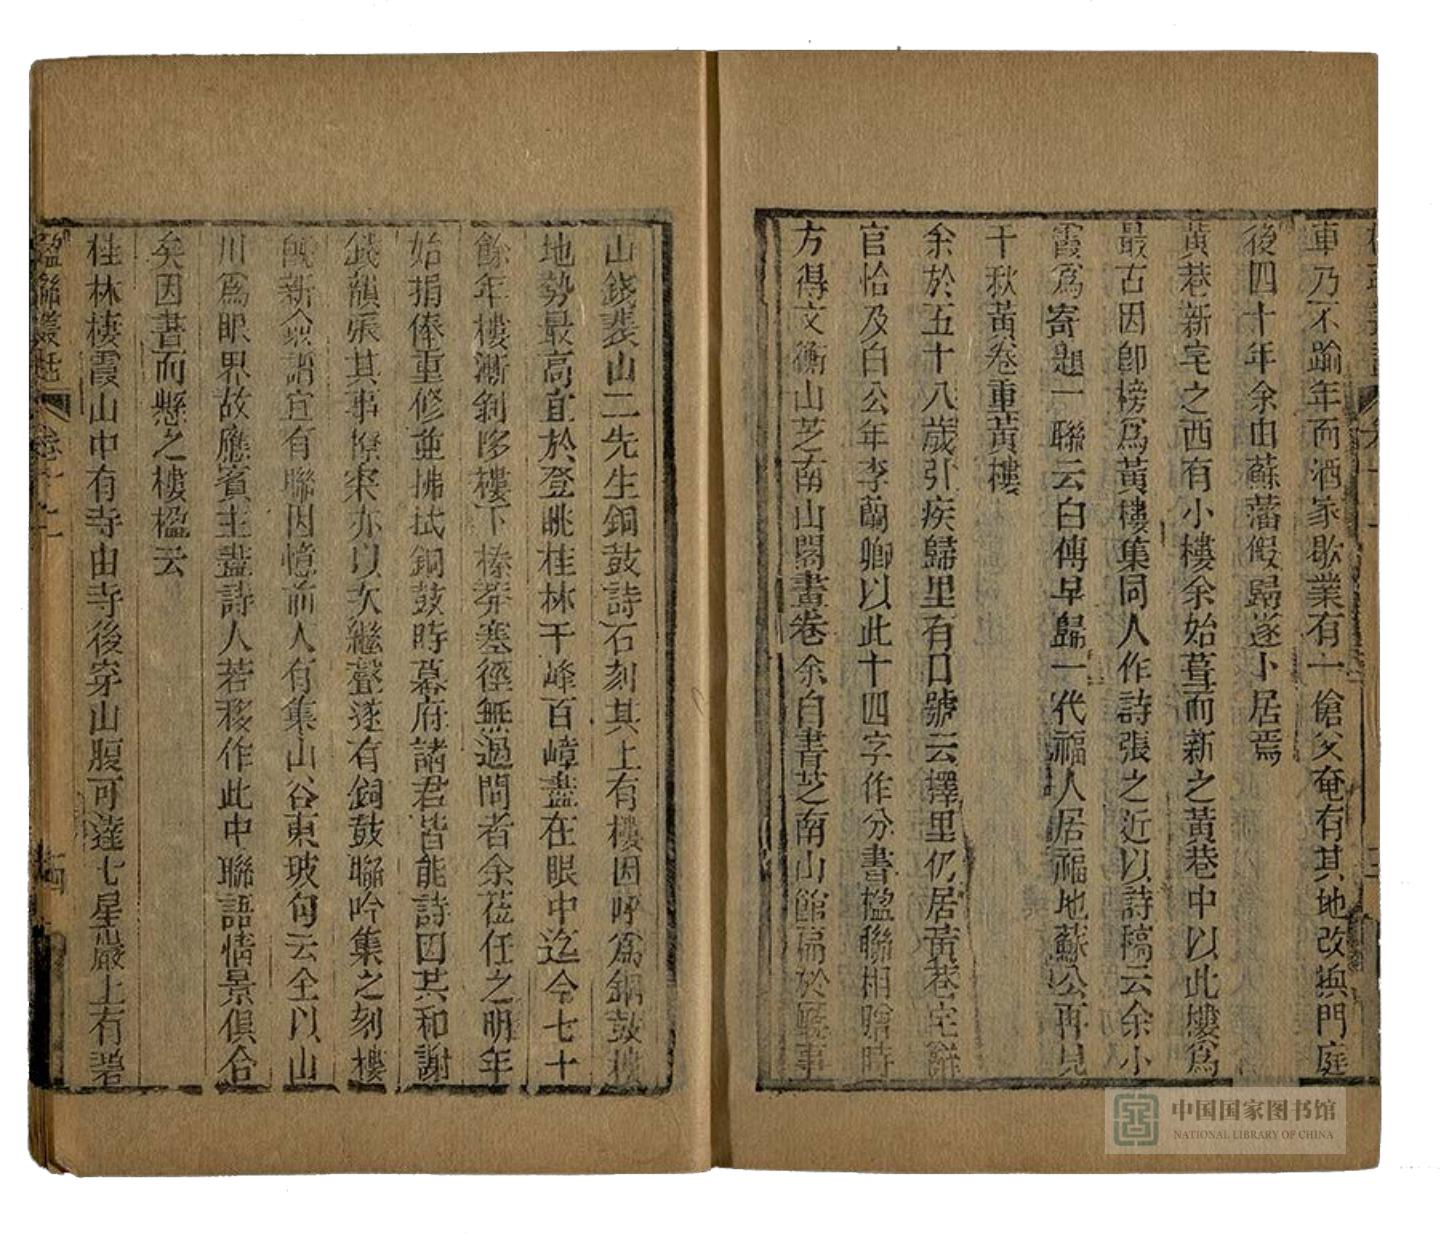 車乃不踰年而酒家歇業有一傖父奄有其地改換門庭
後四十年余由蘇藩假歸遂卜居焉
黃巷新宅之西有小樓余始葺而新之黃巷中以此樓爲
最古因卽榜爲黃樓集同人作詩張之近以詩稿云余小
霞爲寄題一聯云白傅早歸一代福人居福地蘇公再見
千秋黃卷重黃樓
余於五十八歲引疾歸里有口號云擇里仍居黃巷宅辭
官恰及白公年李蘭卿以此十四字作分書楹聯相贈時
方得文衡山芝南山閣畫卷余自書芝南山館扁於廳事
山錢裴山二先生銅鼓詩石刻其上有樓因呼爲銅鼓樓
地勢最高宜於登眺桂林千峰百嶂盡在眼中迄今七十
餘年樓漸剝移樓下榛莽塞徑無過問者余莅任之明年
始捐俸重修並拂拭銅鼓時幕府諸君皆能詩因其和謝
錢韻張其事僚寀亦以次繼聲遂有銅鼓聯吟集之刻樓
旣新僉謂宜有聯因憶前人有集山谷東坡句云全以山
川爲眼界故應賓主盡詩人若移作此中聯語情景俱合
矣因書而懸之樓楹云
桂林棲霞山中有寺由寺後穿山腹可達七星巖上有碧
楹聯叢話 卷十一 十四